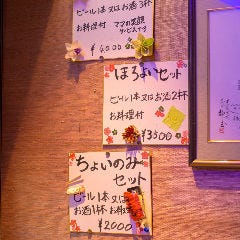 ビール1本又はお酒3杯
お料理付 ママの笑顔
サービスです
¥4000
ほろよいセット
ビール1本又はお酒2杯
お料理付
¥3500
ちょいのみ
セット
ビール1本又は
お酒1杯お料理
¥2000